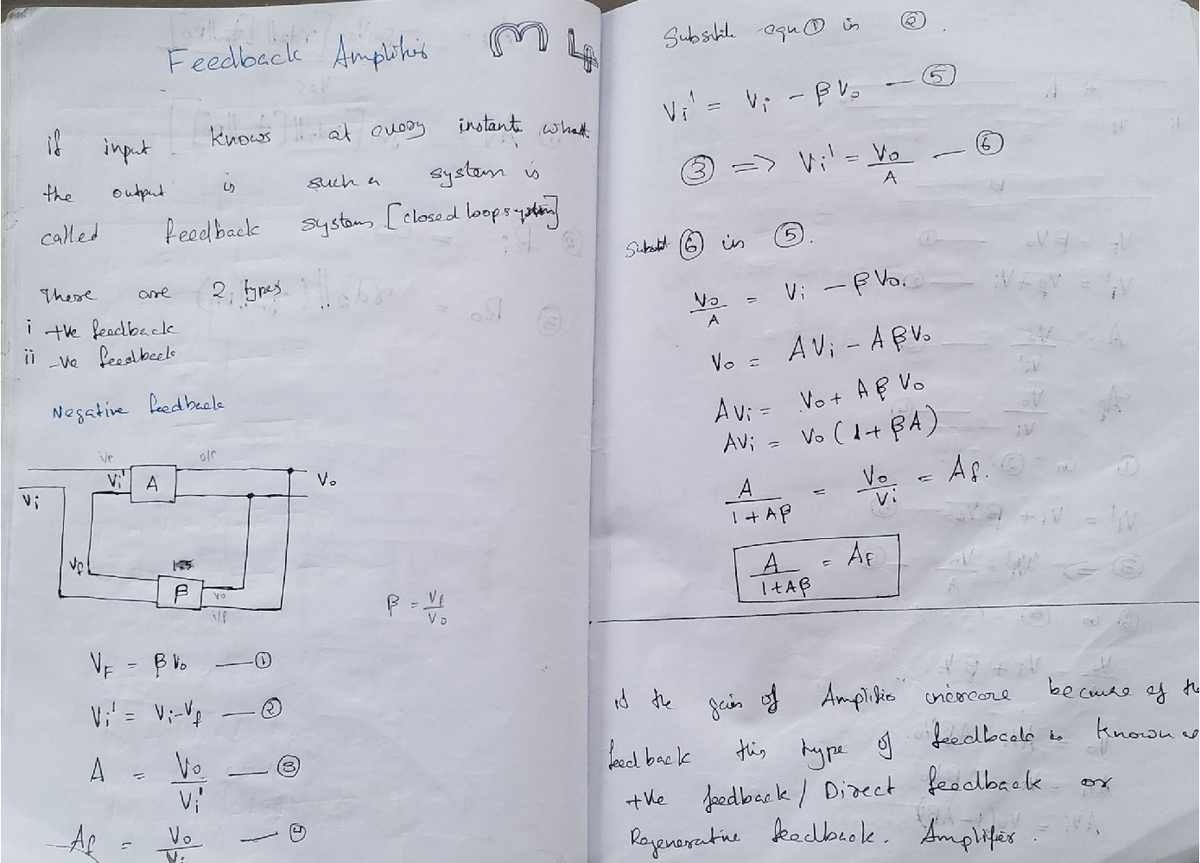 Feedback Amplifier M4
if input knows at every instant what
the output is such a system is
called feedback system [closed loop system]
There are 2 types
i +ve feedback
ii -ve feedback
Negative feedback
i/p o/p
Vi' A Vo
Vi
Vf
β Vo
i/p
β = Vf/Vo
VF = βVo —①
Vi' = Vi-Vf —②
A = Vo/Vi' —③
Af = Vo/Vi —④
Substitute equ ① in ②.
Vi' = Vi - βVo —⑤
③ => Vi' = Vo/A —⑥
Substit ⑥ in ⑤.
Vo/A = Vi - βVo.
Vo = AVi - AβVo
AVi = Vo + AβVo
AVi = Vo(1+βA)
A/1+Aβ = Vo/Vi = Af.
A/1+Aβ = AF
if the gain of Amplifier increase because of the
feedback this type of feedback is known as
+ve feedback / Direct feedback or
Regenerative feedback. Amplifier.